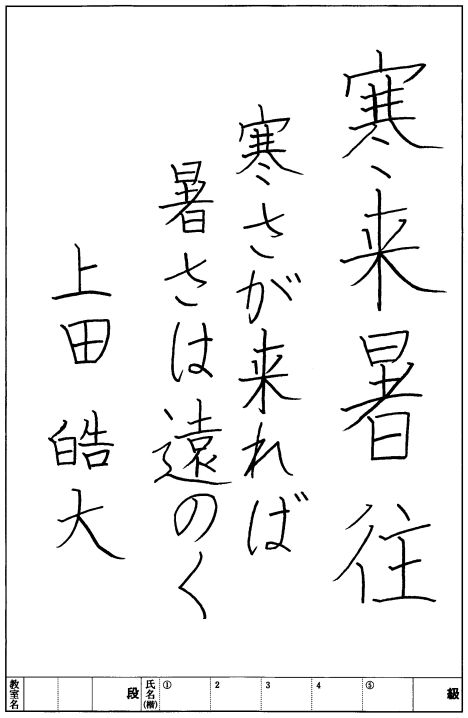 寒来暑往
寒さが来れば
暑さは遠のく
上田皓大
教室名 段 氏名(楷) ① 2 3 4 ⑤ 級